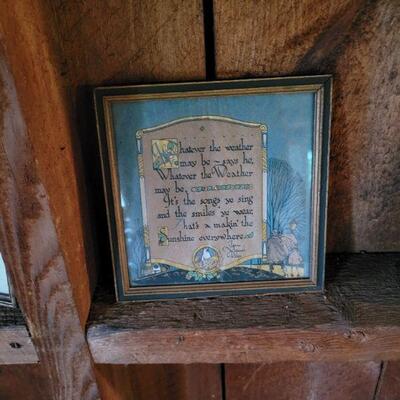 Whatever the weather
may be - says he,
Whatever the Weather
may be,
It's the songs ye sing
and the smiles ye wear,
That's a makin' the
Sunshine everywhere.